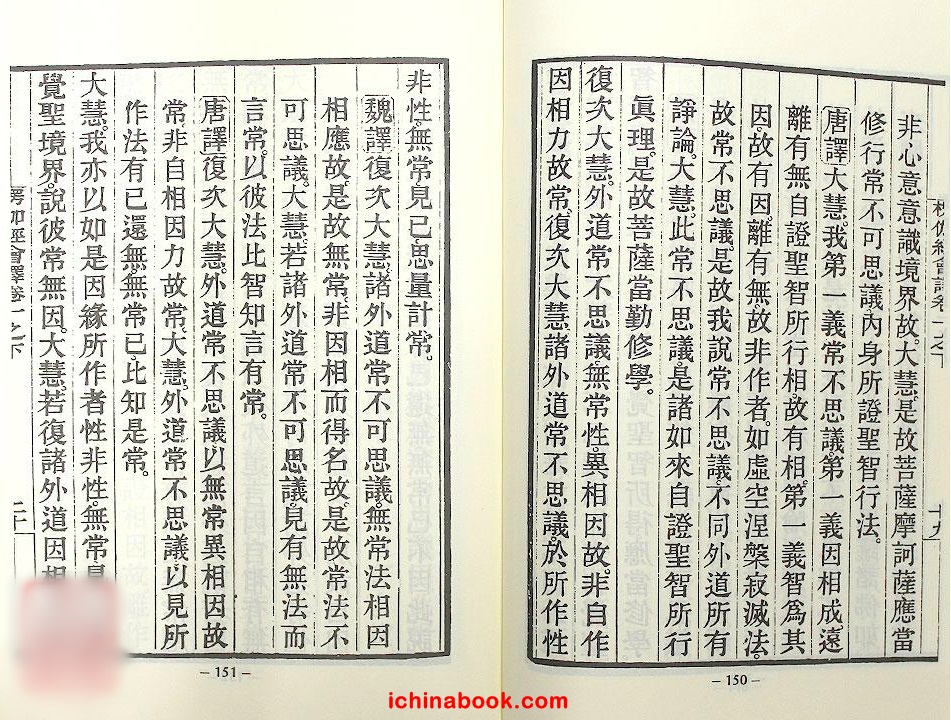 楞伽經會譯卷一之下
十九
非心意意識境界故。大慧。是故菩薩摩訶薩應當
修行常不可思議。內身所證聖智行法。
唐譯大慧。我第一義常不思議。第一義因相成。遠
離有無。自證聖智所行相。故有相。第一義智爲其
因。故有因。離有無故。非作者。如虛空涅槃寂滅法。
故常不思議。是故我說常不思議。不同外道所有
諍論。大慧。此常不思議。是諸如來自證聖智所行
眞理。是故菩薩當勤修學。
復次大慧。外道常不思議。無常性。異相因故。非自作
因相力故常。復次大慧。諸外道常不思議。於所作性
– 150 –
非性。無常見已。思量計常。
魏譯復次大慧。諸外道常不可思議。無常法相因
相應故。是故無常。非因相而得名故。是故常法不
可思議。大慧。若諸外道常不可思議。見有無法而
言常。以彼法比智知言有常。
唐譯復次大慧。外道常不思議。以無常異相因故
常。非自相因力故常。大慧。外道常不思議。以見所
作法有已還無。無常已。比知是常。
大慧。我亦以如是因緣。所作者性非性。無常見
覺聖境界。說彼常無因。大慧。若復諸外道因相
楞伽經會譯卷一之下
二十
– 151 –
ichinabook.com